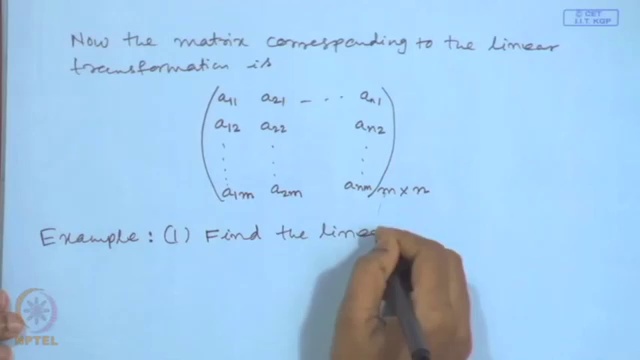 © CET
I.I.T. KGP
Now the matrix corresponding to the linear
transformation is
a11 a21 - ... an1
a12 a22 an2
⋮ ⋮ ⋮
a1m a2m anm m×n
Example: (1) Find the linea
NPTEL